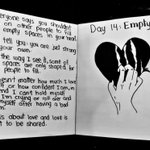 everyone says you shouldn't
on other people to fill
empty spaces in your heart.
tell you: you are just
strong your own.
the way I see it, some of
spaces are only shaped for
people to fill.
doesn't matter how much I love
or how confident I am, in
end I can't hold myself
I'm crying or
myself after having a bad
is about love and love is
to be shared.
Day 14: Empty